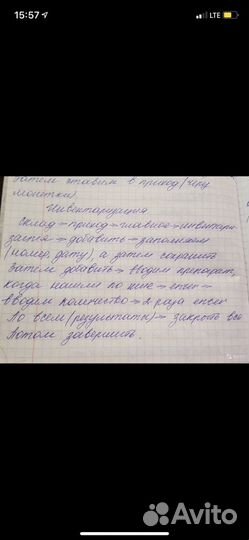 15:57
LTE
затем ставим в приход/черу
монетки).
Инвентаризация.
Склад → приход → главное → инвентари-
зация → добавить → заполняем
(номер, дату), а затем сохранить
Затем добавить → вводим препарат,
когда нашли по цене → enter →
вводим количество → 2 раза enter
По всем (результаты) → закрыть все
Потом завершить.
Avito